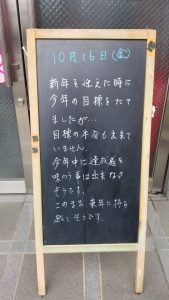 10月16日(金)
新年を迎えた時に
今年の目標をたて
ましたが…
目標の半分も出来て
いません。
今年中に達成感を
味わう事は出来なさ
そうです。
このまま来年に持ち
越しそうです。